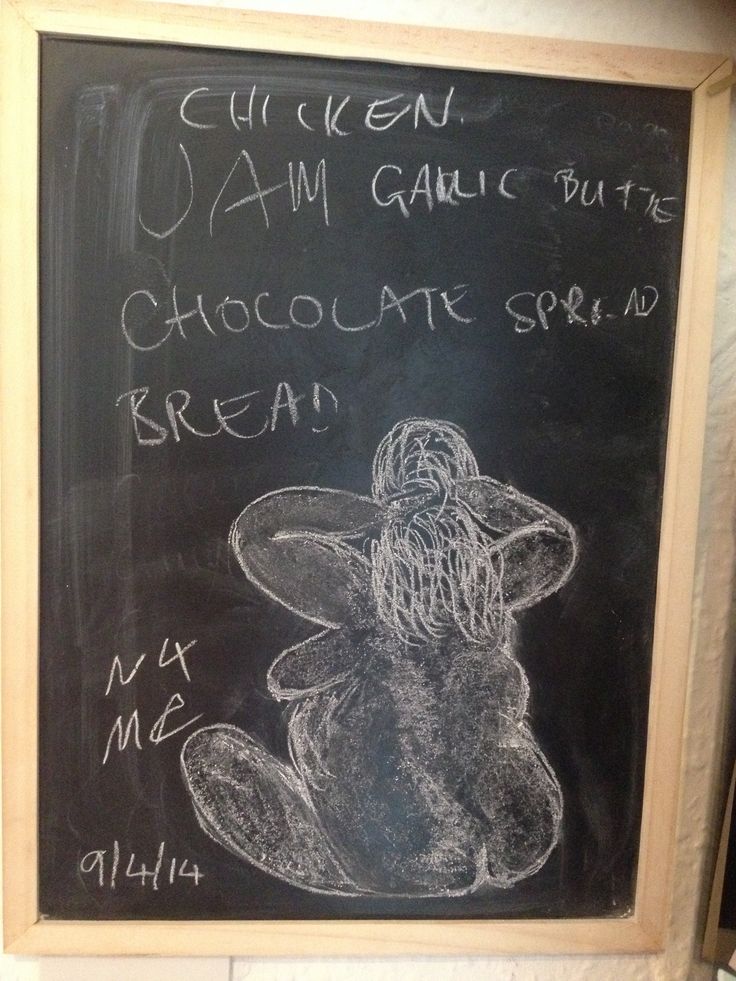 CHICKEN.
JAM GARLIC BUTTE
CHOCOLATE SPREAD
BREAD
N4
ME
9/4/14